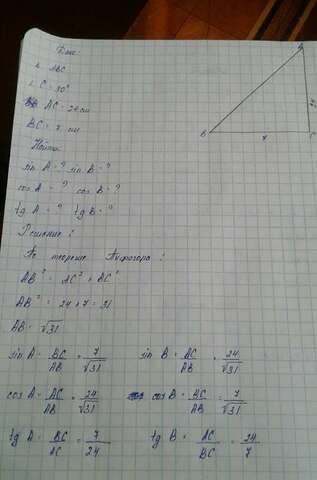 Дано:
Δ ABC
∠ C = 90°
AC = 24 см
BC = 7 см
Найти:
sin A = ? sin B = ?
cos A = ? cos B = ?
tg A = ? tg B = ?
Решение:
По теореме Пифагора:
AB² = AC² + BC²
AB² = 24 + 7 = 31
AB = √31
sin A = BC/AB = 7/√31 sin B = AC/AB = 24/√31
cos A = AC/AB = 24/√31 cos B = BC/AB = 7/√31
tg A = BC/AC = 7/24 tg B = AC/BC = 24/7
A
B
7
C